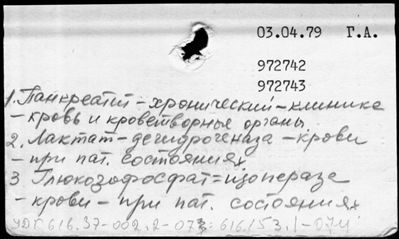 03.04.79 Г.А.
972742
972743
1. Панкреатит - хронический - клинике
- кровь и кроветворные органы
2. Лактат - дегидрогеназа - крови
- при пат. состояниях
3 Глюкозофосфат = изопераза
- крови - при пат. состояниях
УДК 616.37-002.2-07: 616.153.1-074